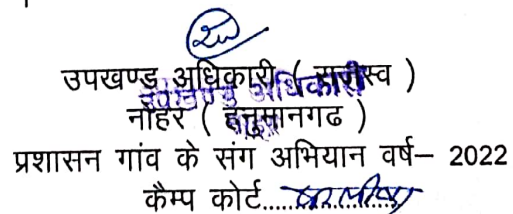 उपखण्ड अधिकारी ( राजस्व )
नोहर ( हनुमानगढ )
प्रशासन गांव के संग अभियान वर्ष– 2022
कैम्प कोर्ट....................